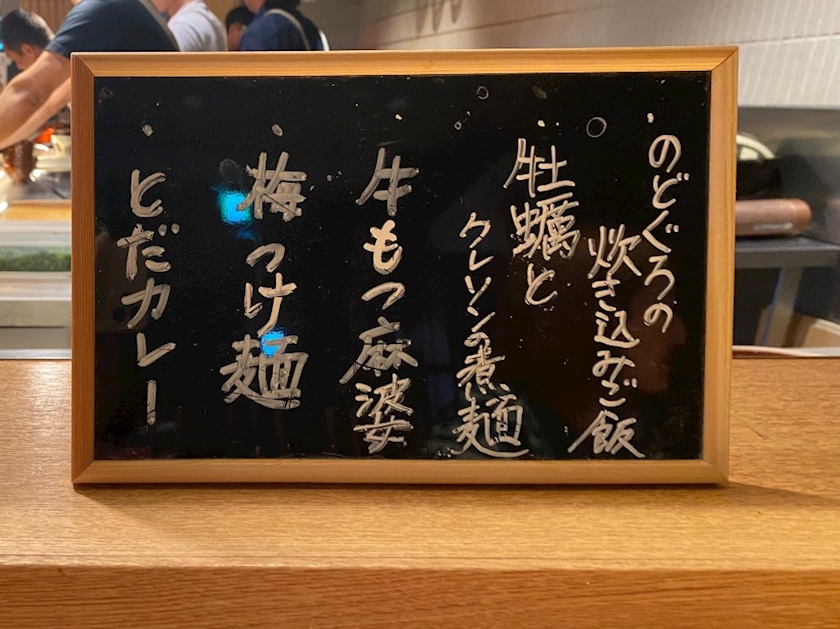 のどぐろの
炊き込みご飯
牡蠣と
クレソンの煮麺
牛もつ麻婆
梅つけ麺
とだカレー